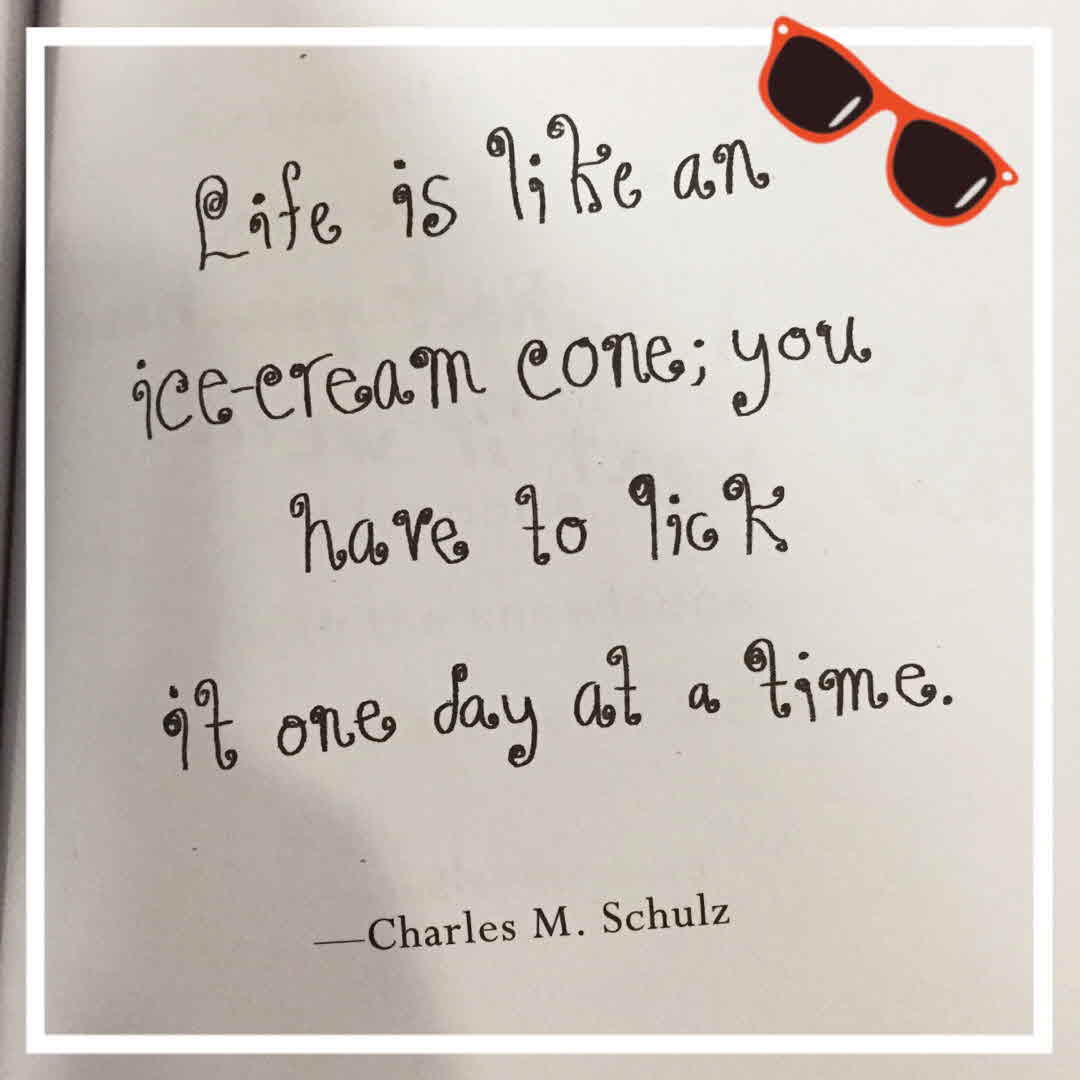 Life is like an
ice-cream cone; you
have to lick
it one day at a time.
—Charles M. Schulz